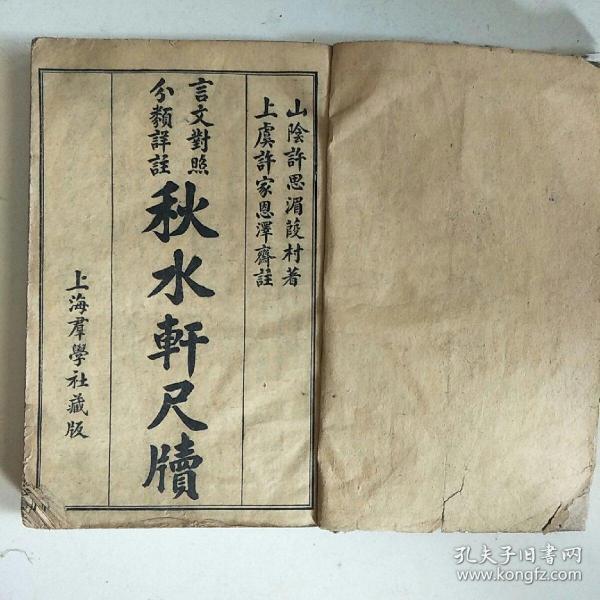 山陰許思湄葭村著
上虞許家恩澤齋註
言文對照
分類詳註
秋水軒尺牘
上海羣學社藏版
孔夫子旧书网
www.kongfz.com